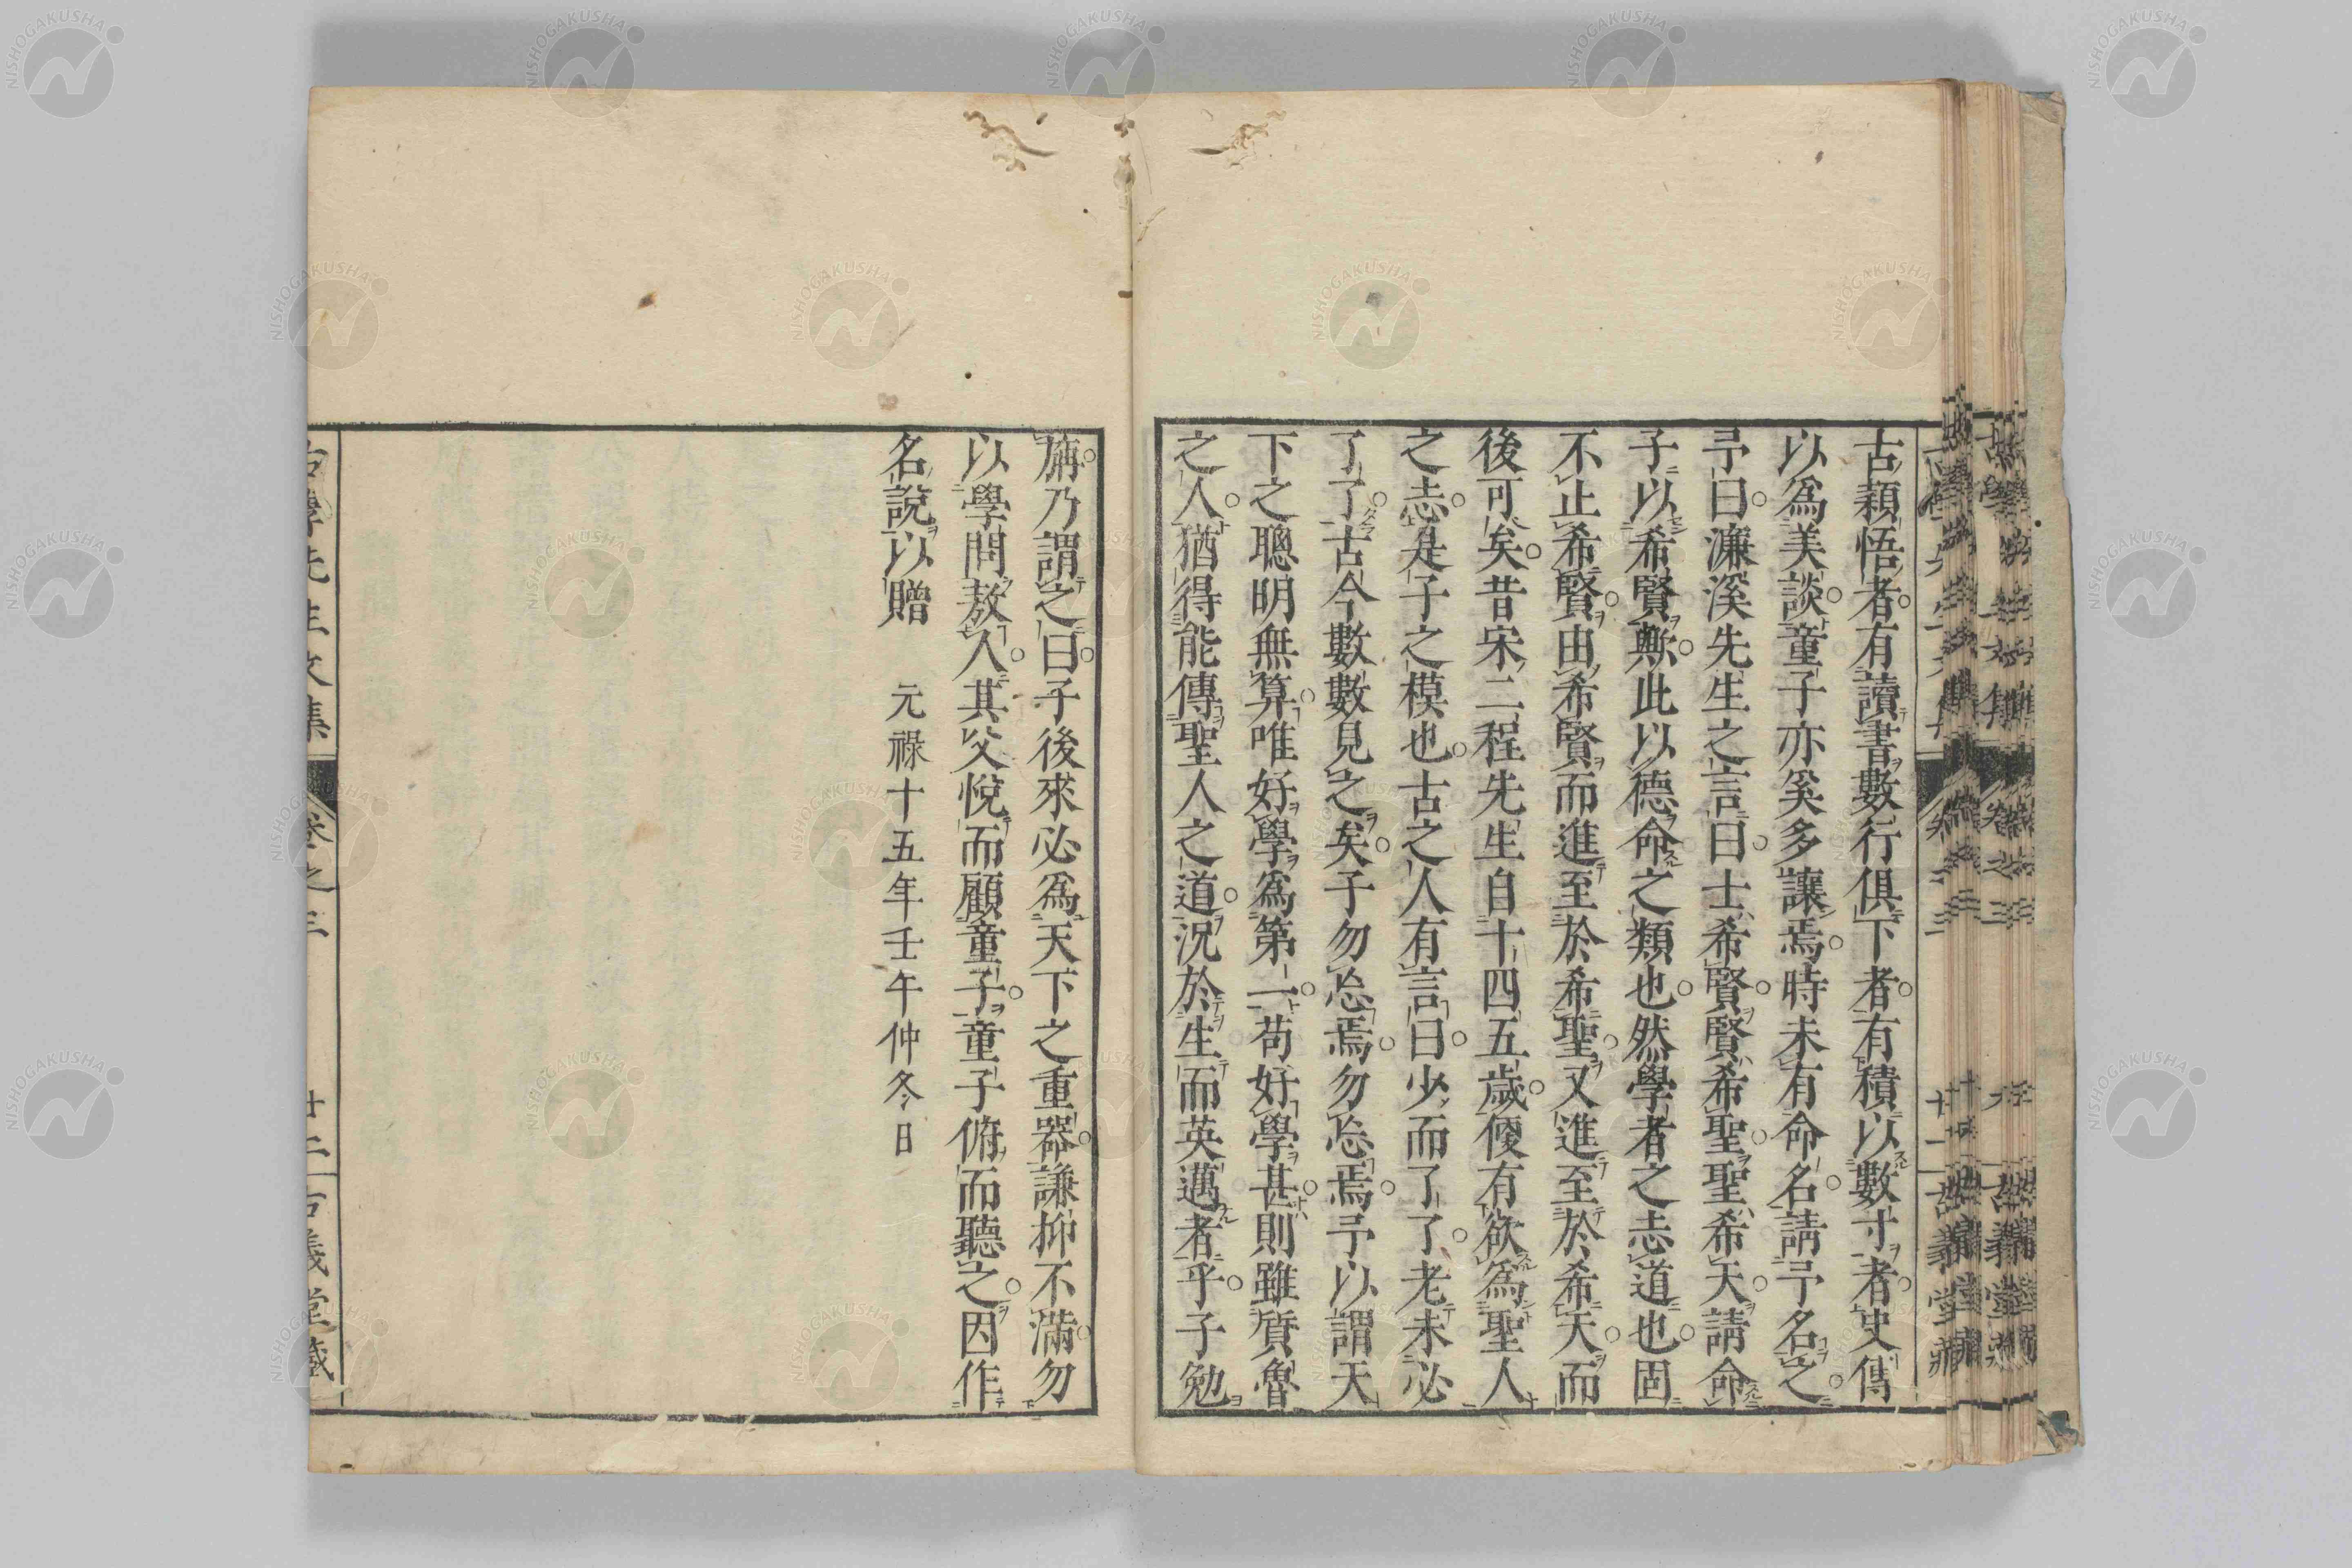 古穎悟者有讀書數行俱下者有積以數寸者史傳
以爲美談童子亦奚多讓焉時未有命名請予名之
予曰濂溪先生之言曰士希賢賢希聖聖希天請命
子以希賢歟此以德命之類也然學者之志道也固
不止希賢由希賢而進至於希聖又進至於希天而
後可矣昔宋二程先生自十四五歲便有欲爲聖人
之志是子之模也古之人有言曰少而了了老未必
了了古今數數見之矣子勿忘焉勿忘焉予以謂天
下之聰明無算唯好學爲第一苟好學甚則雖質魯
之人猶得能傳聖人之道況於生而英邁者乎子勉
旃乃謂之曰子後來必爲天下之重器謙抑不滿勿
以學問敖人其父悅而顧童子童子俯而聽之因作
名說以贈　元祿十五年壬午仲冬日
古學先生文集　卷之三　古義堂藏
NISHOGAKUSHA